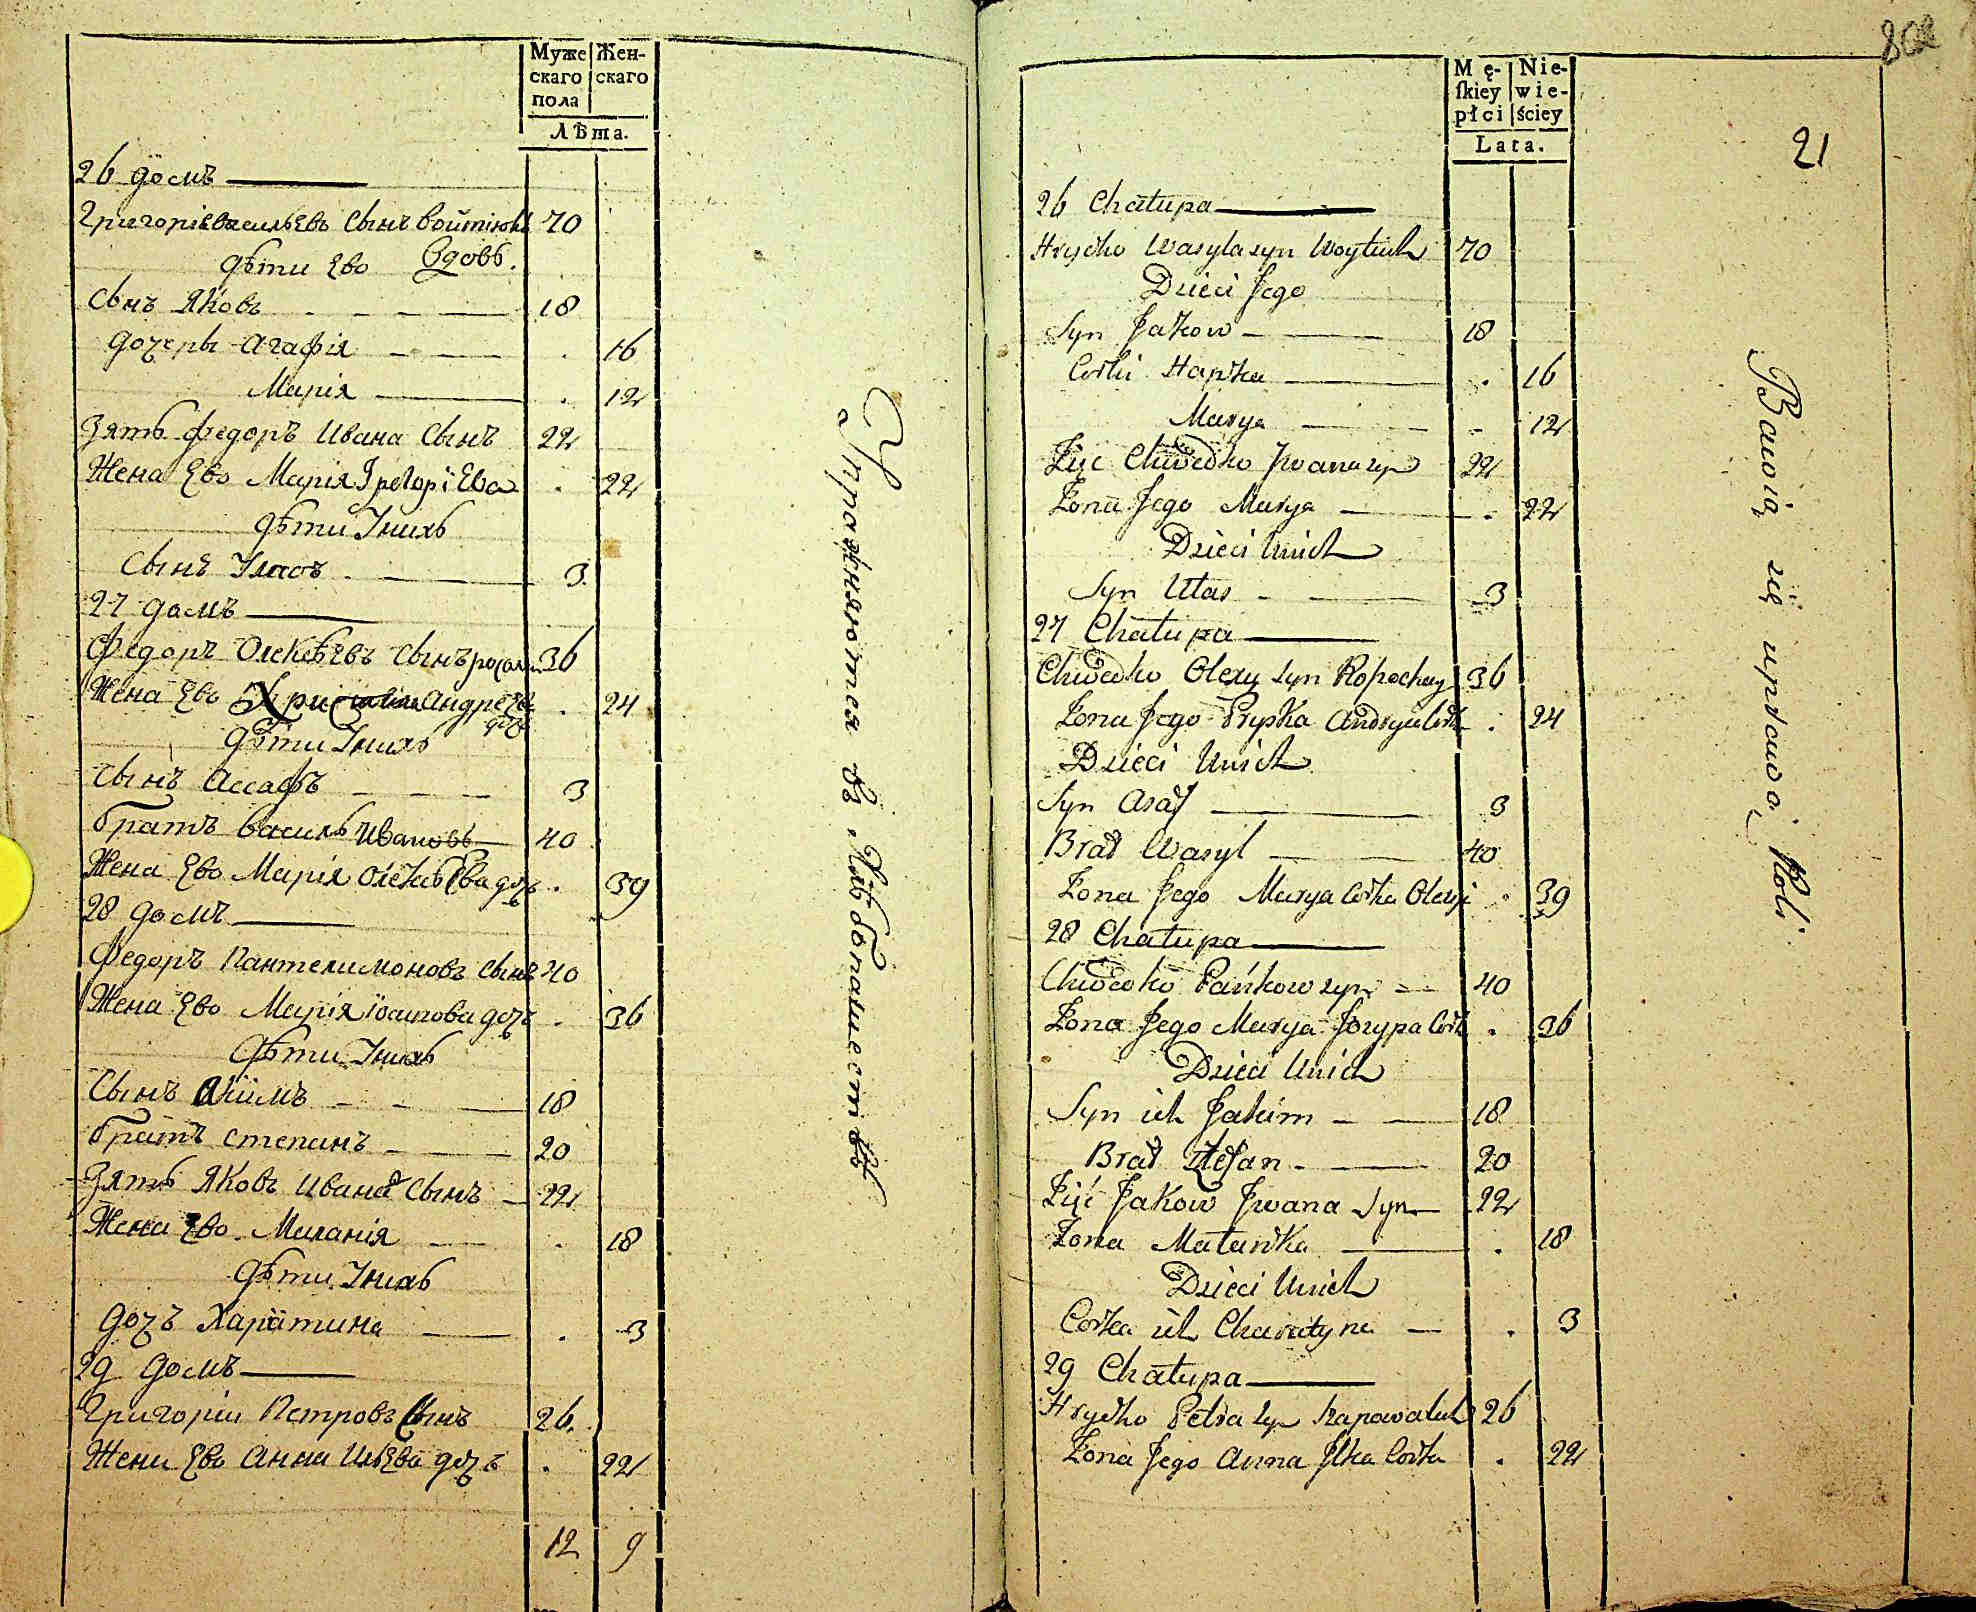 Муже Жен-
скаго скаго
пола
Лѣта.
26 домъ
Григорій васильевъ Сынъ войтюкъ 70
дѣти Ево Вдовъ.
Сынъ Яковъ 18
дочеры Агафія 16
Марія 12
Зять федоръ Ивана Сынъ 22
Жена Ево Марія Грегоріева 22
дѣти Унихъ
Сынъ Уласъ 3
27 домъ
Федоръ Олексѣевъ Сынъ 36
Жена Ево Андреева доч 24
дѣти Унихъ
Сынъ Ассафъ 3
братъ василь Ивановъ 40
Жена Ево Марія Олексѣева доч 39
28 домъ
Федоръ Пантелимоновъ Сынъ 40
Жена Ево Марія іосипова дочъ 36
дѣти Унихъ
Сынъ Акимъ 18
братъ степанъ 20
Зять Яковъ Ивана Сынъ 22
Жена Ево Миланія 18
дѣти Унихъ
дочъ Харитина 3
29 домъ
Григорій Петровъ Сынъ 26
Жена Ево Анна Илѣева дочъ 22
12 9
Упражняются въ Хлѣбопашествѣ
802
21
Mę- Nie-
ſkiey wie-
płci ściey
Lata.
26 Chałupa
Hryćko Wasyla syn Woytiuk 70
Dzieci Jego
Syn Jakow 18
Corki Hapka 16
Marya 12
Zięc Chwedko Jwana syn 22
Żona Jego Marya 22
Dzieci Unich
Syn Ułas 3
27 Chałupa
Chwedko Olexy syn 36
Żona Jego Pryska Andryia Corka 24
Dzieci Unich
Syn Asaf 3
Brat Wasyl 40
Żona Jego Marya Corka Olexy 39
28 Chałupa
Chwedko Pańkow syn 40
Żona Jego Marya Jozypa Corka 36
Dzieci Unich
Syn ich Jakim 18
Brat Stefan 20
Zięć Jakow Jwana Syn 22
Żona Małanka 18
Dzieci Unich
Corka ich Charytyna 3
29 Chałupa
Hryćko Petra syn 26
Żona Jego Anna Jlka Corka 22
Bawią się uprawą Roli